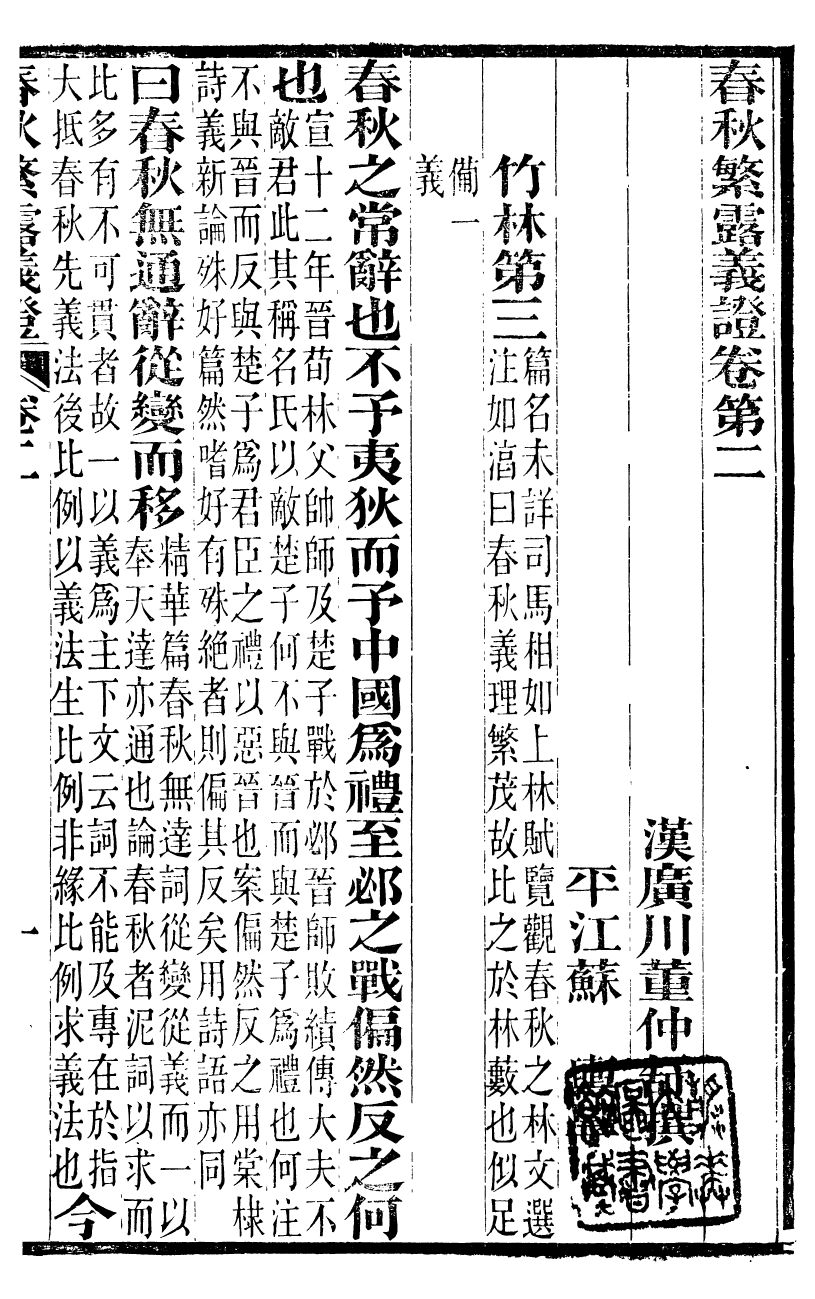 春秋繁露義證卷第二
漢廣川董仲舒撰
平江蘇
竹林第三
篇名未詳司馬相如上林賦覽觀春秋之林文選
注如湻曰春秋義理繁茂故比之於林藪也似足
備一
義
春秋之常辭也不予夷狄而予中國爲禮至邲之戰偏然反之何
也
宣十二年晉荀林父帥師及楚子戰於邲晉師敗績傳大夫不
敵君此其稱名氏以敵楚子何不與晉而與楚子爲禮也何注
不與晉而反與楚子爲君臣之禮以惡晉也案偏然反之用棠棣
詩義新論殊好篇然嗜好有殊絕者則偏其反矣用詩語亦同
曰春秋無通辭從變而移
精華篇春秋無達詞從變從義而一以
奉天達亦通也論春秋者泥詞以求而
比多有不可貫者故一以義爲主下文云詞不能及專在於指
大抵春秋先義法後比例以義法生比例非緣比例求義法也
今
春秋繁露義證
卷二
一